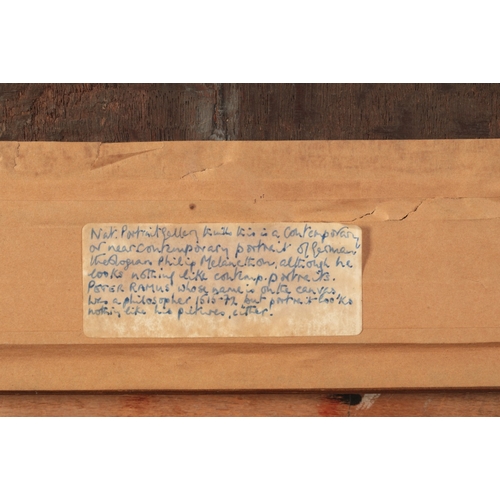 Nat. Portrait Gallery think this is a contemporary
or near contemporary portrait of German
theologian Philip Melancthon, although he
looks nothing like contemp. portraits.
Ramus whose name is on the canvas
was a philosopher 1515-72 but portrait looks
nothing like his pictures, either.